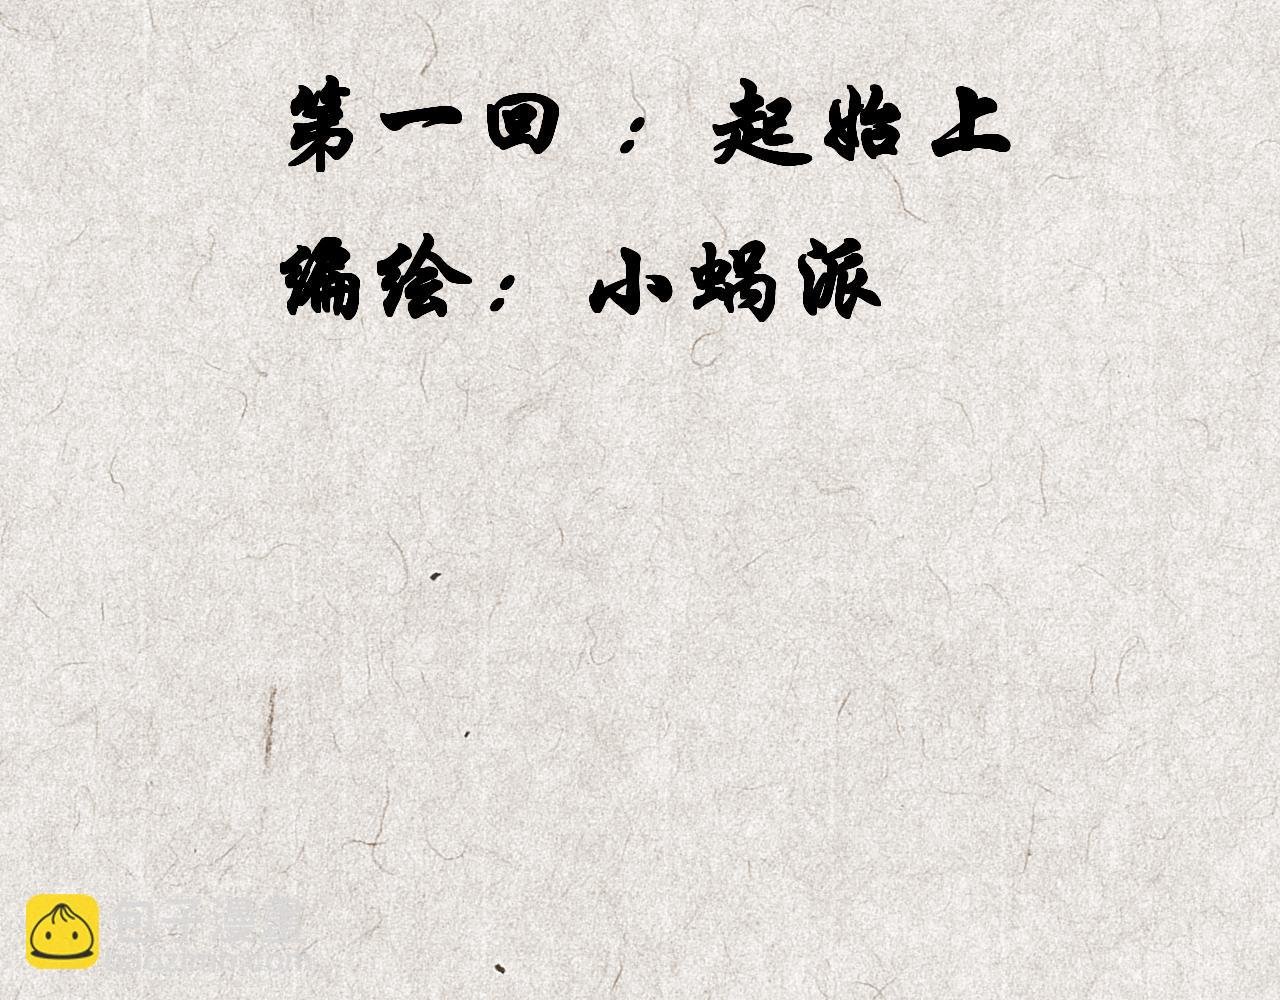 第一回：起始上
编绘：小蜗派
包子漫畫
baozimh.com